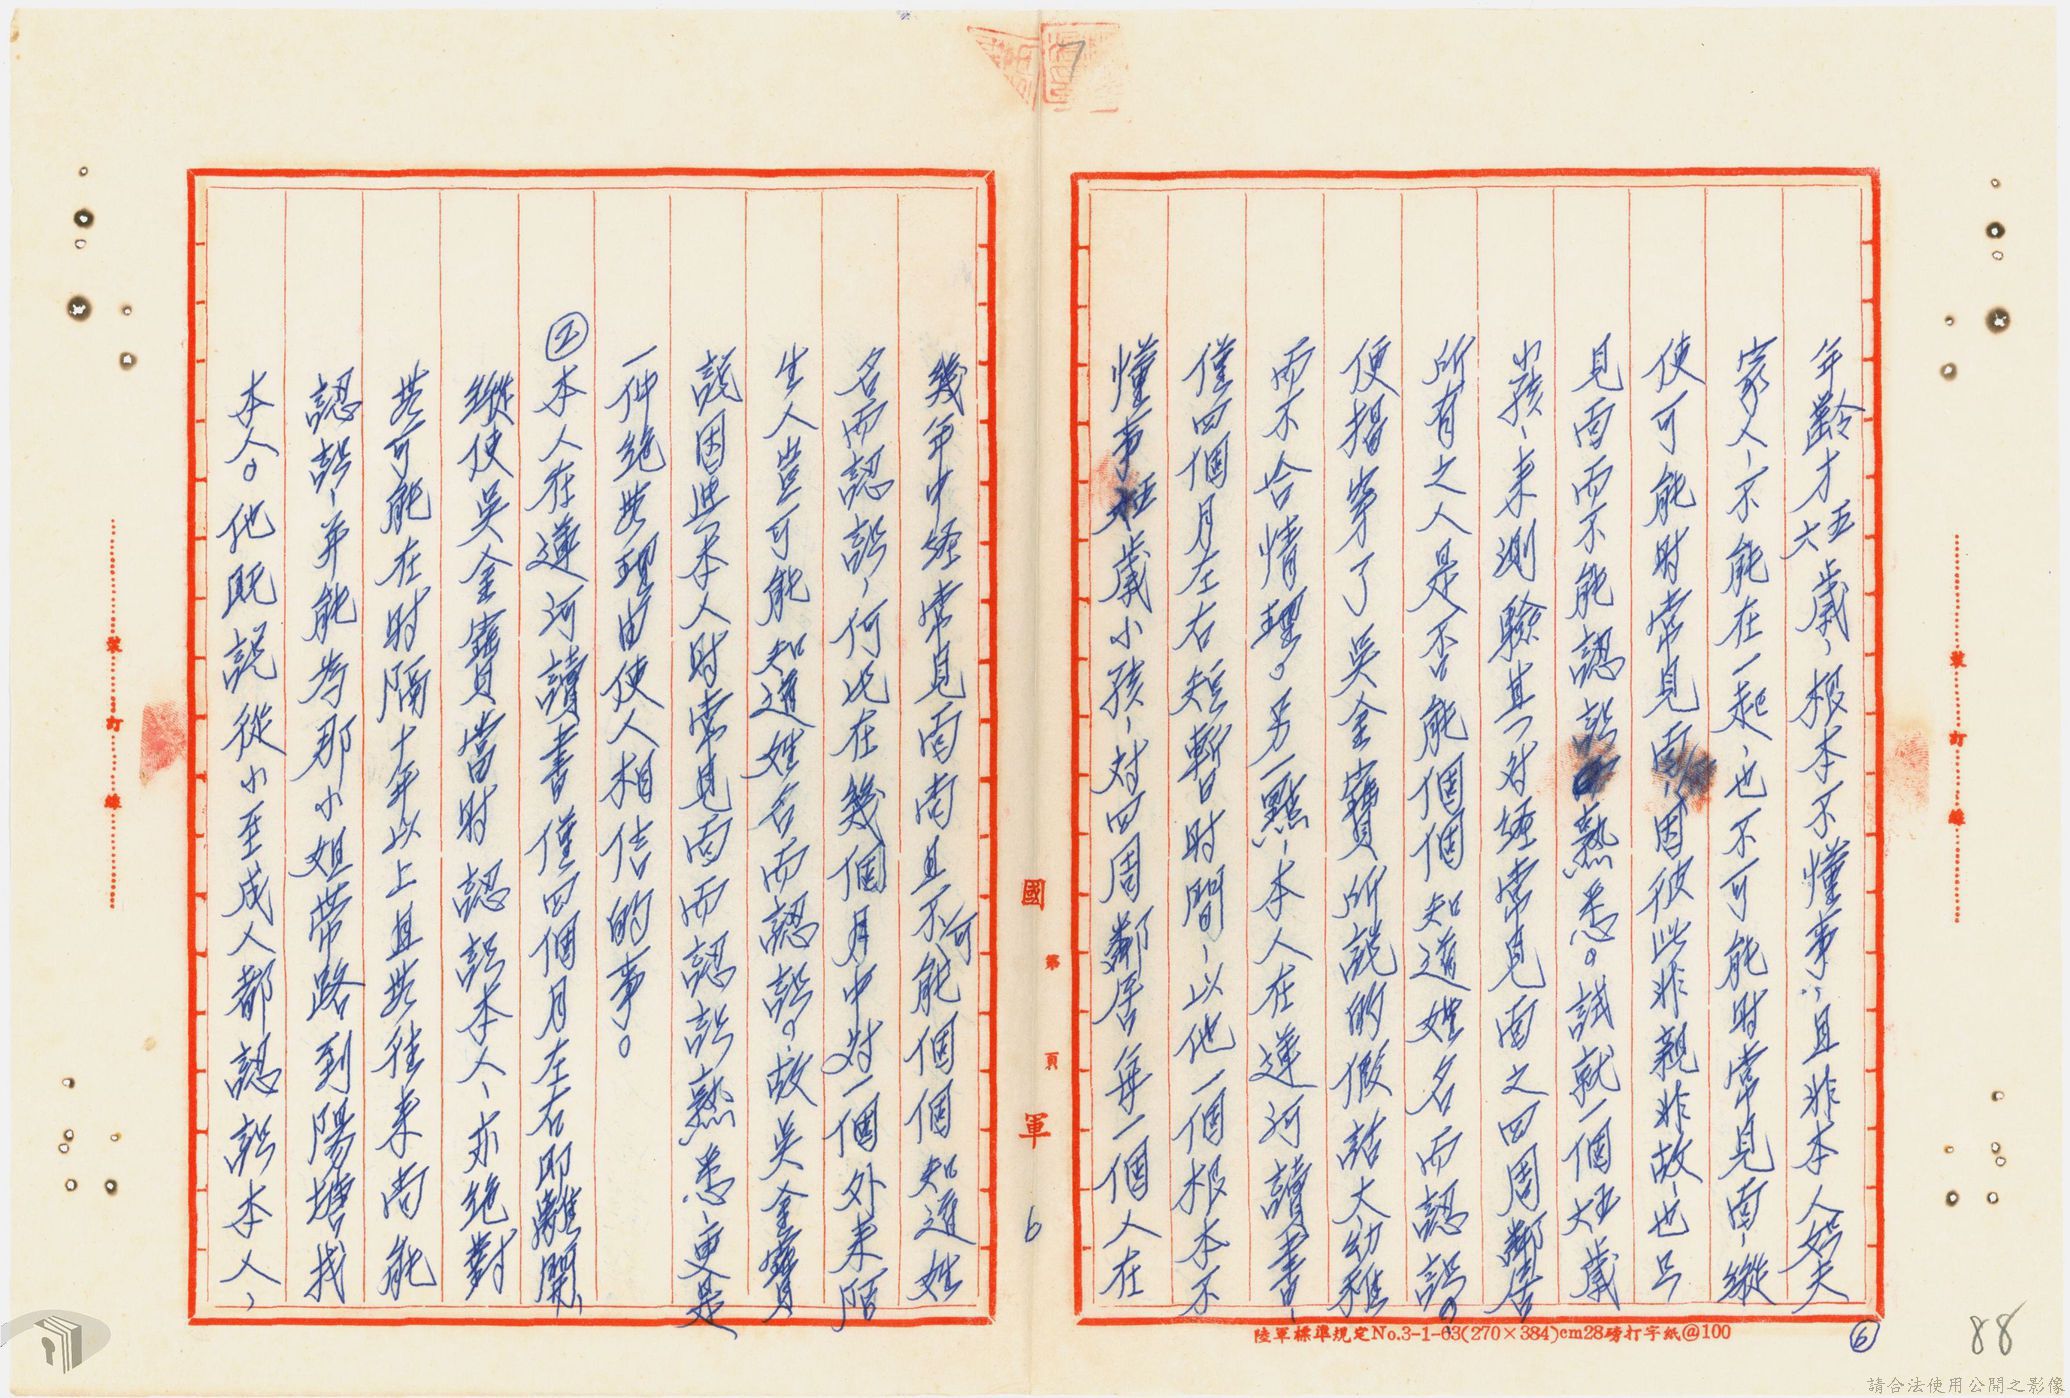 7
年齡才五六歲、根本不懂事、且非本人姑丈
家人、不能在一起、也不可能時常見面、縱
使可能时常見面、因彼此非親非故、也只
見面而不能認訟熟悉。試就一個五六歲
小孩、来測驗其对經常見面之四周鄰居
所有之人是否能個個知道姓名而認訟。
便揭穿了吳金寶所說的假話太幼稚
而不合情理。另一點、本人在蓮河讀書、
僅四個月左右短暫时間、以他一個根本不
懂事五六歲小孩、对四周鄰居每一個人在
幾年中經常見面尚且不可能個個知道姓
名而認訟、何况在幾個月中对一個外来陌
生人豈可能知道姓名而認訟。故吳金寶
說因與本人时常見面而認訟熟悉、更是
一件絕无理由使人相信的事。
②本人在蓮河讀書僅四個月左右即離開、
縱使吳金寶當时認訟本人、亦絕對
无可能在时隔十年以上且无往来尚能
認訟、并能為那小姐带路到陽塘找
本人。他既說從小至成人都認訟本人、
國 第 頁 軍
6
裝 訂 線
裝 訂 線
陸軍標準規定No.3-1-63(270×384)cm28磅打字紙@100
⑥
88
請合法使用公開之影像